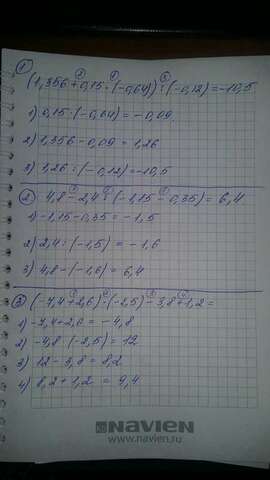 ① (1,356+0,15·(-0,64)):(-0,12)=-10,5
1) 0,15·(-0,64)=-0,09.
2) 1,356-0,09=1,26
3) 1,26:(-0,12)=-10,5
② 4,8-2,4:(-1,15-0,35)=6,4
1) -1,15-0,35=-1,5
2) 2,4:(-1,5)=-1,6
3) 4,8-(-1,6)=6,4
③ (-7,4+2,6)·(-2,5)-3,8+1,2=
1) -7,4+2,6=-4,8
2) -4,8·(-2,5)=12
3) 12-3,8=8,2
4) 8,2+1,2=9,4
NAVIEN
www.navien.ru